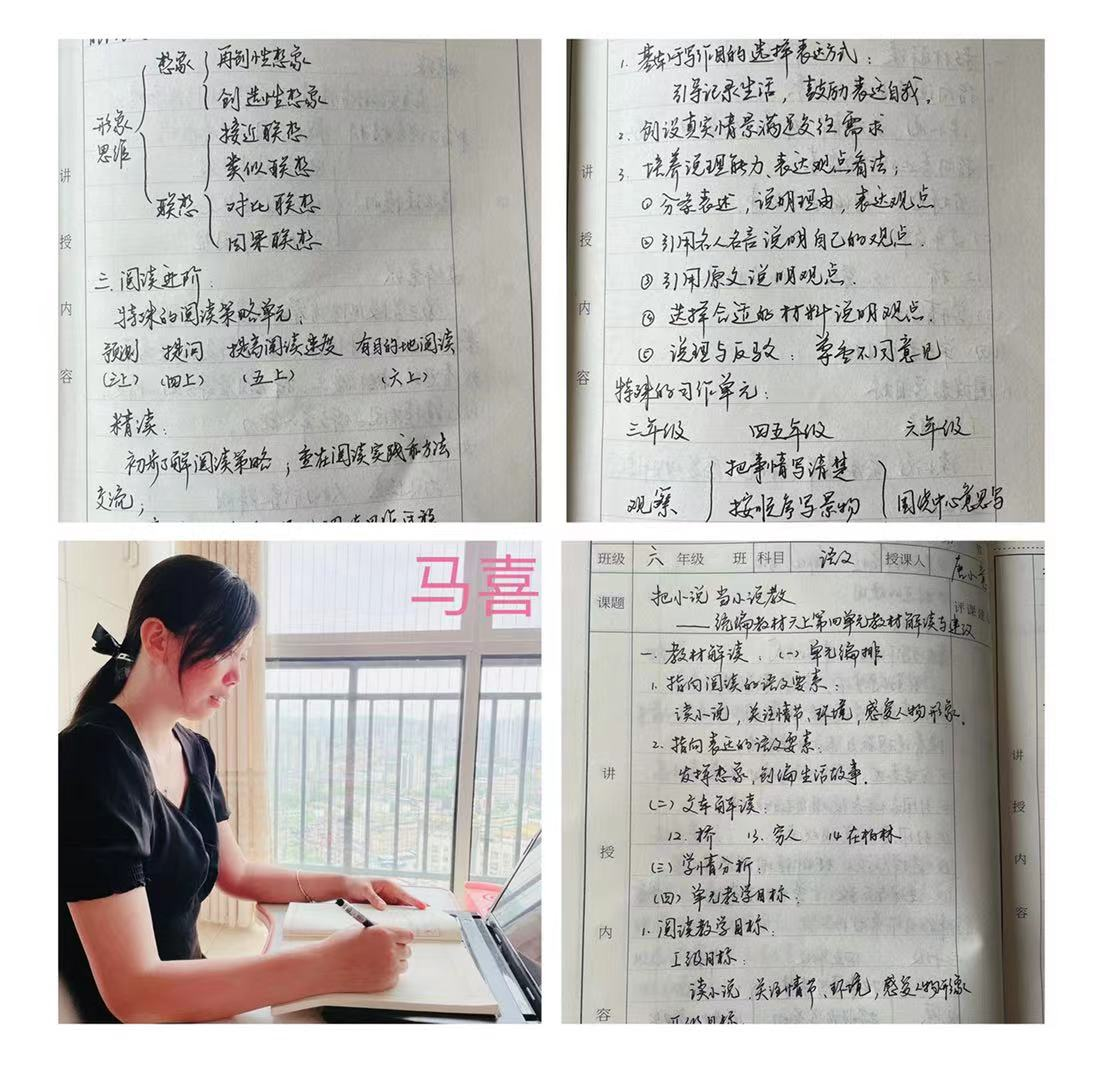 想象
再创性想象
创造性想象
形象
思维
接近联想
类似联想
联想
对比联想
因果联想
三.阅读进阶:
特殊的阅读策略单元:
预测 提问 提高阅读速度 有目的地阅读
(三上) (四上) (五上) (六上)
精读:
初步了解阅读策略;重在阅读实践和方法
交流;
讲
授
内
容
1. 基于写作目的选择表达方式:
引导记录生活,鼓励表达自我。
2. 创设真实情景满足交往需求
3. 培养说理能力、表达观点看法;
①分条表述,说明理由,表达观点
②引用名人名言说明自己的观点.
③引用原文说明观点.
④选择合适的材料说明观点.
⑤说理与反驳:尊重不同意见
特殊的习作单元:
三年级 四五年级 六年级
把事情写清楚
观察 按顺序写景物 围绕中心意思写
讲
授
内
容
马喜
班级 六 年级 班 科目 语文 授课人 唐小
课题
把小说当小说教
——统编教材六上第四单元教材解读与建议
评课
一.教材解读:(一)单元编排
1.指向阅读的语文要素:
读小说,关注情节、环境,感受人物形象。
2.指向表达的语文要素:
发挥想象,创编生活故事.
(二)文本解读:
12.桥 13.穷人 14在柏林
(三)学情分析:
(四)单元教学目标:
1.阅读教学目标:
I级目标:
读小说.关注情节、环境,感受人物形象
讲
授
内
容
讲
授
内
容